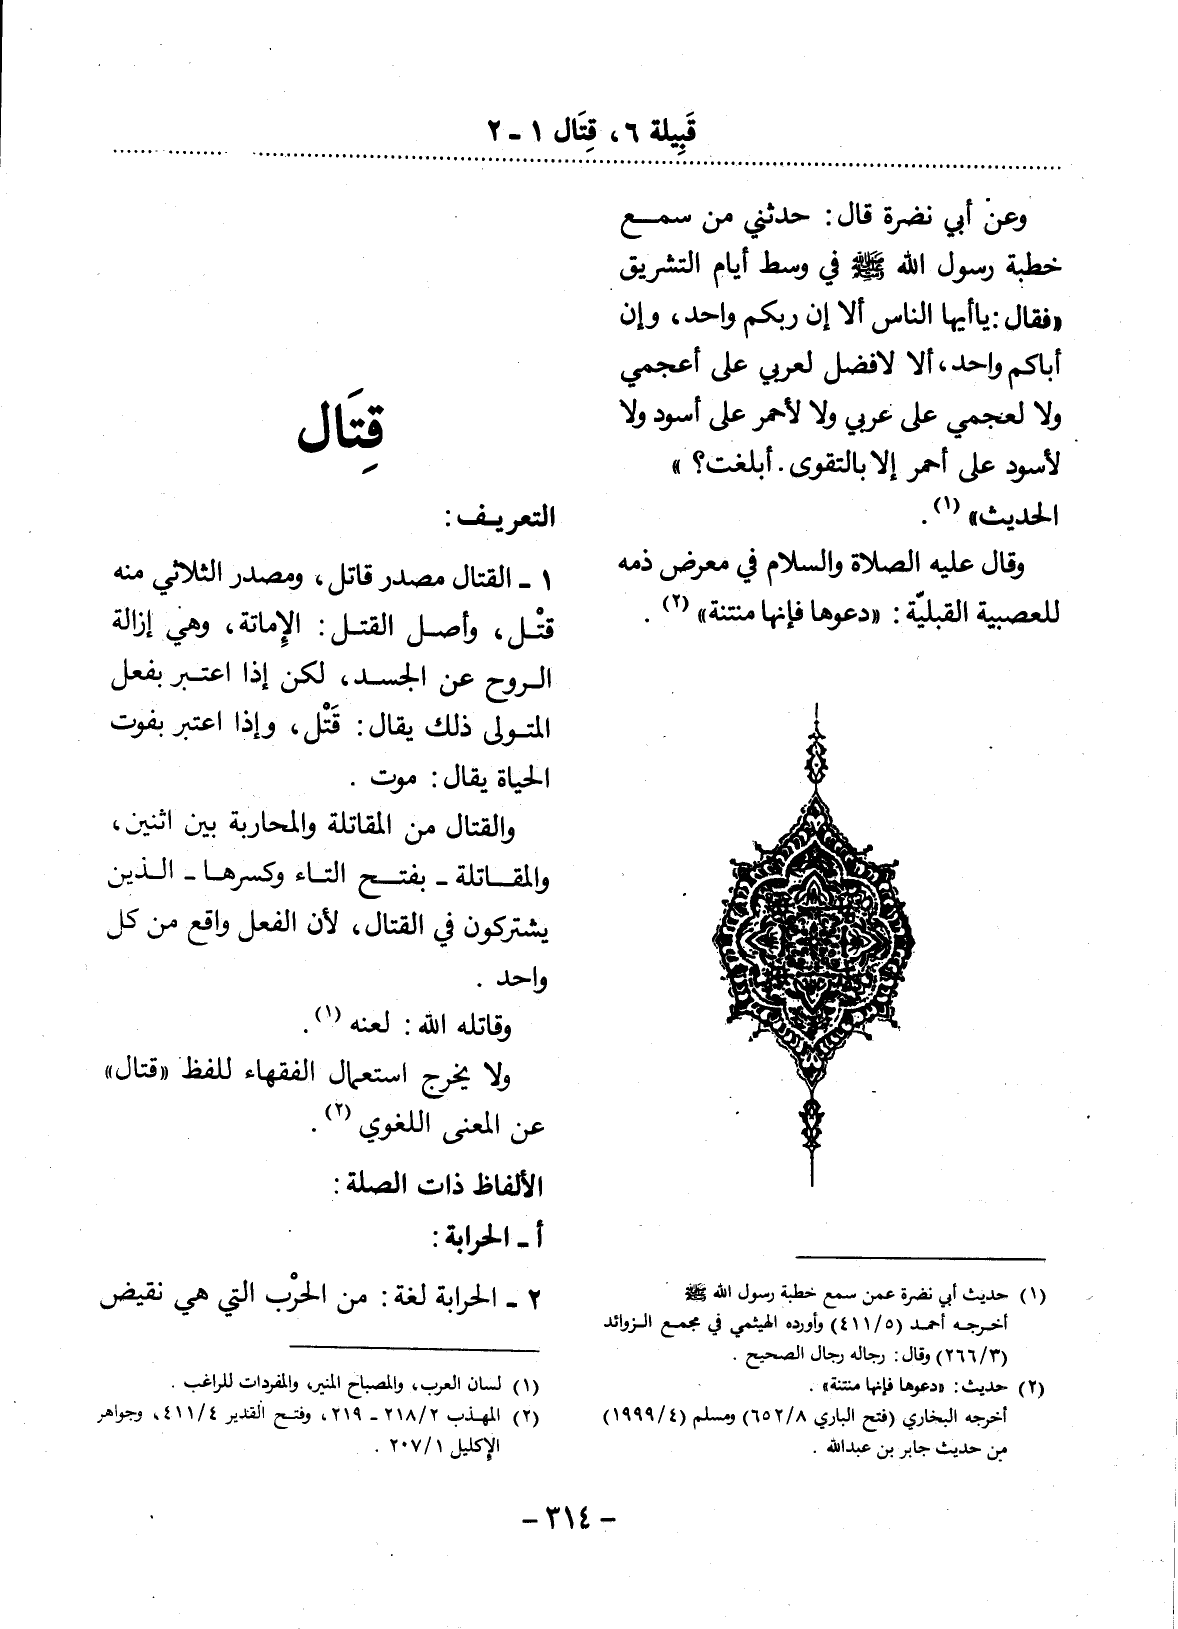 قَبِيلة ٦، قِتَال ١ - ٢
وعن أبي نضرة قال: حدثني من سمع
خطبة رسول الله ﷺ في وسط أيام التشريق
«فقال: ياأيها الناس ألا إن ربكم واحد، وإن
أباكم واحد، ألا لافضل لعربي على أعجمي
ولا لعجمي على عربي ولا لأحمر على أسود ولا
لأسود على أحمر إلا بالتقوى. أبلغت؟ »
الحديث» (١).
وقال عليه الصلاة والسلام في معرض ذمه
للعصبية القبليّة: «دعوها فإنها منتنة» (٢).
(١) حديث أبي نضرة عمن سمع خطبة رسول الله ﷺ
أخرجه أحمد (٤١١/٥) وأورده الهيثمي في مجمع الزوائد
(٢٦٦/٣) وقال: رجاله رجال الصحيح .
(٢) حديث: «دعوها فإنها منتنة» .
أخرجه البخاري (فتح الباري ٦٥٢/٨) ومسلم (١٩٩٩/٤)
من حديث جابر بن عبدالله .
قِتَال
التعريف:
١ - القتال مصدر قاتل، ومصدر الثلاثي منه
قتْل، وأصل القتل: الإماتة، وهي إزالة
الروح عن الجسد، لكن إذا اعتبر بفعل
المتولى ذلك يقال: قَتْل، وإذا اعتبر بفوت
الحياة يقال: موت .
والقتال من المقاتلة والمحاربة بين اثنين،
والمقاتلة - بفتح التاء وكسرها - الذين
يشتركون في القتال، لأن الفعل واقع من كل
واحد .
وقاتله الله: لعنه (١).
ولا يخرج استعمال الفقهاء للفظ «قتال»
عن المعنى اللغوي (٢).
الألفاظ ذات الصلة:
أ - الحرابة:
٢ - الحرابة لغة: من الحرْب التي هي نقيض
(١) لسان العرب، والمصباح المنير، والمفردات للراغب .
(٢) المهذب ٢١٨/٢ - ٢١٩، وفتح القدير ٤١١/٤، وجواهر
الإكليل ٢٠٧/١ .
- ٣١٤ -